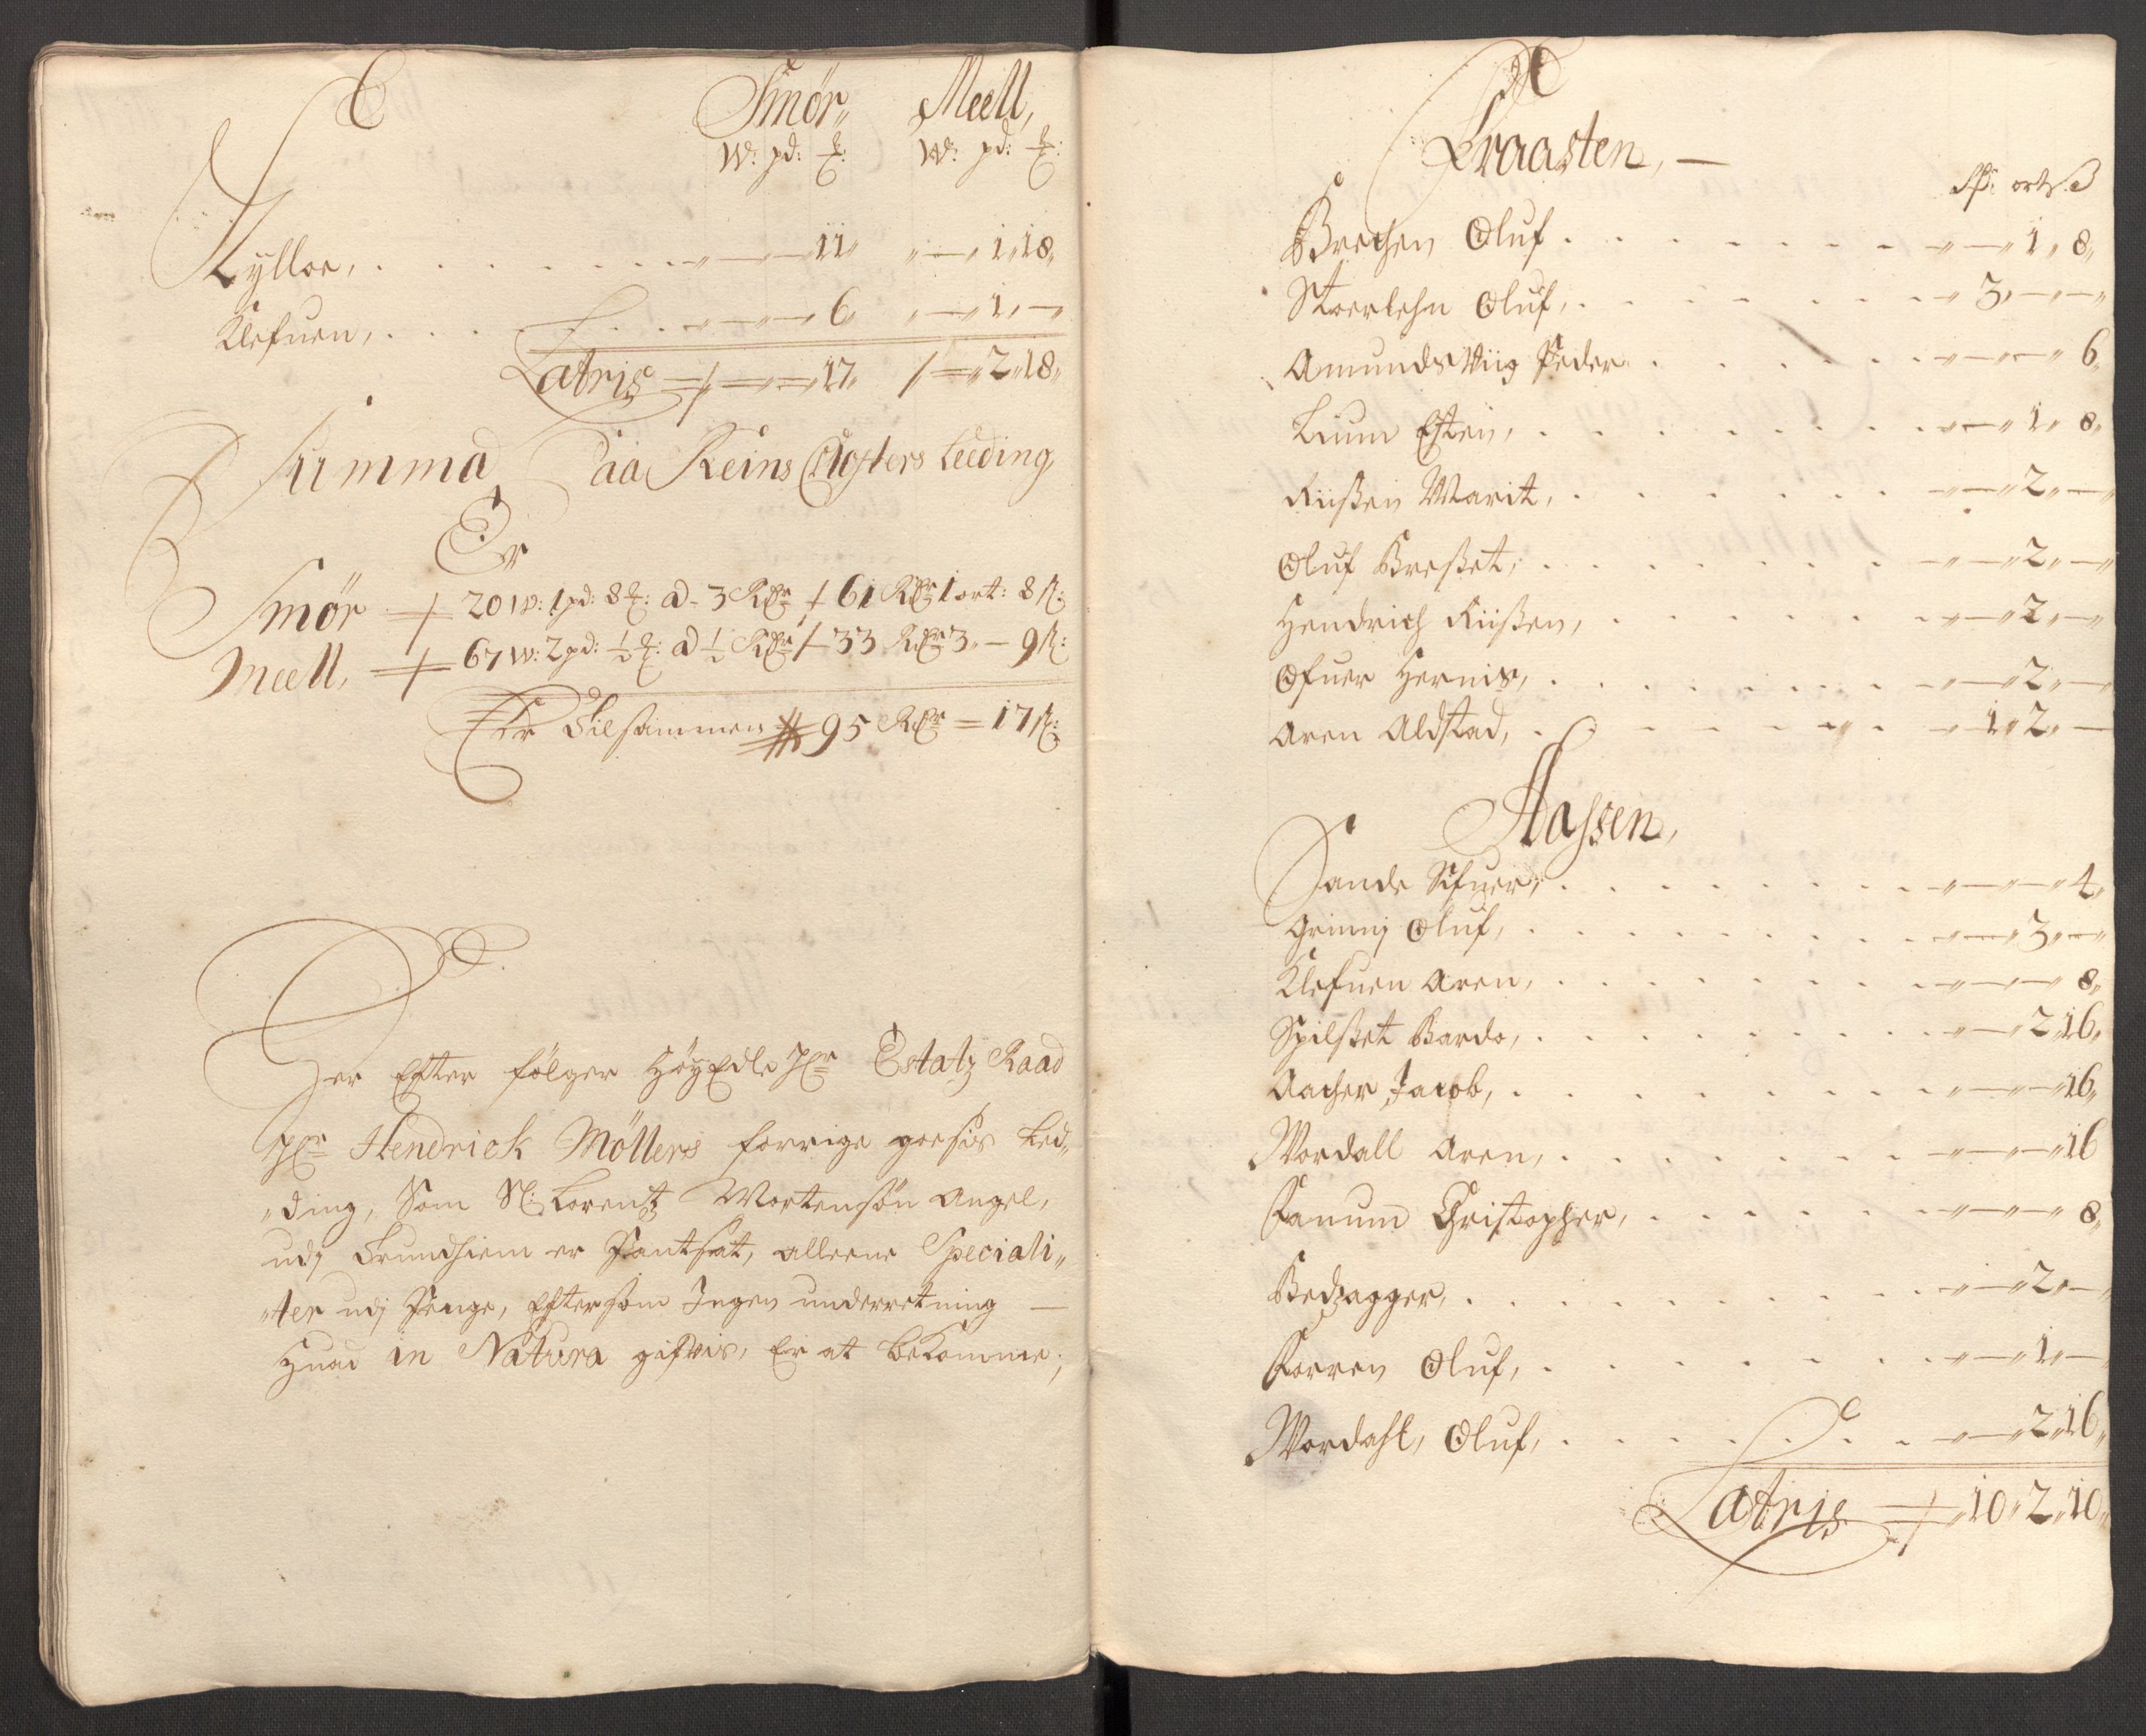 Smör, Meell,
W: pd: ℔: W: pd: ℔:
Kylloe, . . . . . . 11 1 18
Klefuen, . . . 6 1 —
Latris 17 2 18
Summa Paa Reins Closters Leeding,
Er
Smör 20 W: 1 pd: 8 ℔: a 3 Rdr 61 Rdr 1 ort: 8 ß:
Meell, 67 W: 2 pd: ½ ℔: a ½ Rdr 33 Rdr 3 — 9 ß:
Er Tilsammen 95 Rdr = 17 ß:
Her Efter fölger HöyEdle Hr Estatz Raad
Hr Hendrick Möllers forrige goedsis Led„
„ding, Som Sl: Lorentz Mortensön Angel,
udj Trundhiem er Pantsat, alleene Speciali„
„ter udj Penge, Eftersom Ingen underretning —
Huad in Natura gifvis, Er at bekomme;
Kraasten, —
Rdr: ort: ß
Brechen Oluf . . . . 1 8
Stoerlehn Oluf, . . . . 3 — —
Amunds Viig Peder . . . . 6
Lium Esten, . . . . 1 8
Riißen Marit, . . . . 2 —
Oluf Breßet, . . . . 2 —
Hendrich Riißen, . . . . 2 —
Ofuer Hernis, . . . . 2 —
Aren Aldstad, . . . . 1 2 —
Aassen,
Sande Sifuer, . . . . 4
Grinnj Oluf, . . . . 3 —
Klefuen Aren, . . . . 8
Spilßet Bardo, . . . . 2 16
Aacher Jacob, . . . . 16
Mordall Aren, . . . . 16
Fanum Christopher, . . . . 8
Bedsagger, . . . . 2 —
Forren Oluf, . . . . 1 —
Mordahl, Oluf, . . . . 2 16
Latris 10 2 10